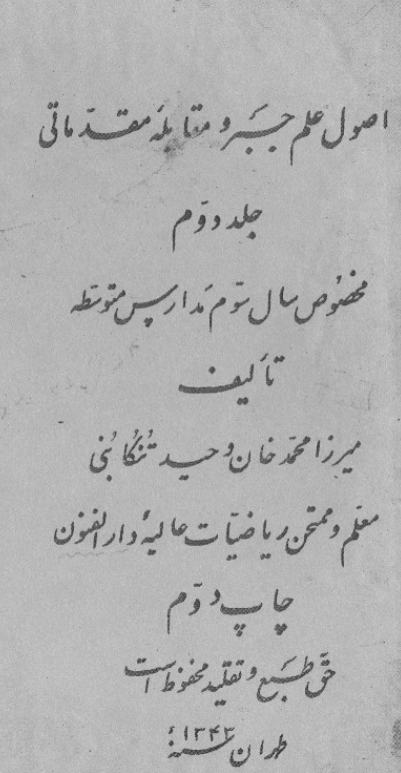 اصول علم جبر و مقابلهٔ مقدّماتی
جلد دوّم
مخصوص سال سوّم مدارس متوسّطه
تألیف
میرزا محمّد خان وحید تُنکابُنی
معلّم و ممتحن ریاضیّات عالیهٔ دارالفنون
چاپ دوّم
حقّ طبع و تقلید محفوظ است
طهران سنهٔ ۱۳۴۳